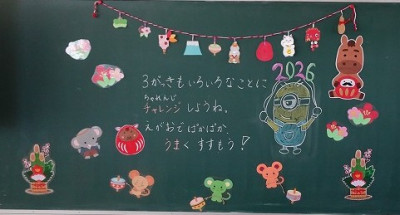 3がっきもいろいろなことに
ちゃれんじ
チャレンジしようね。
えがおでぱかぱか、
うまくすすもう!
2026